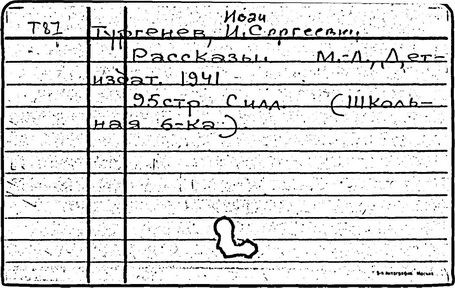 Иван
Т87 Тургенев, И. Сергеевич.
Рассказы. М.-Л., Дет-
издат. 1941
95 стр. с илл. (Школь-
ная б-ка.)